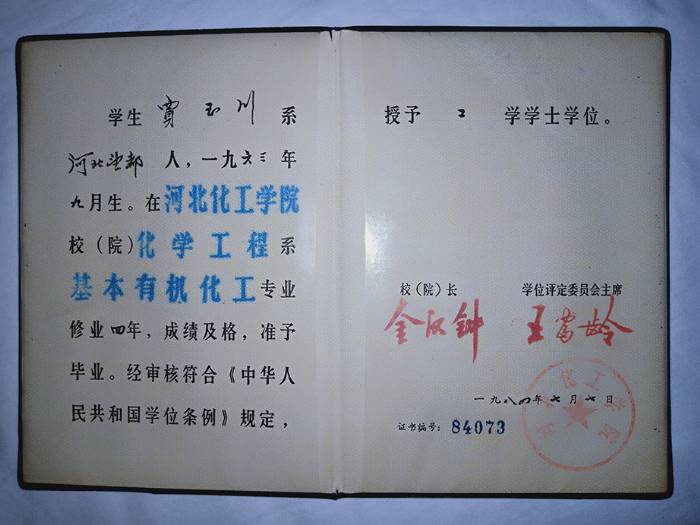 学生 贾玉川 系
河北望都 人，一九六三年
九月生。在河北化工学院
校（院）化学工程系
基本有机化工专业
修业四年，成绩及格，准予
毕业。经审核符合《中华人
民共和国学位条例》规定，
授予 工 学学士学位。
校（院）长 学位评定委员会主席
王富龄
一九八四年七月七日
证书编号：84073
河北化工学院